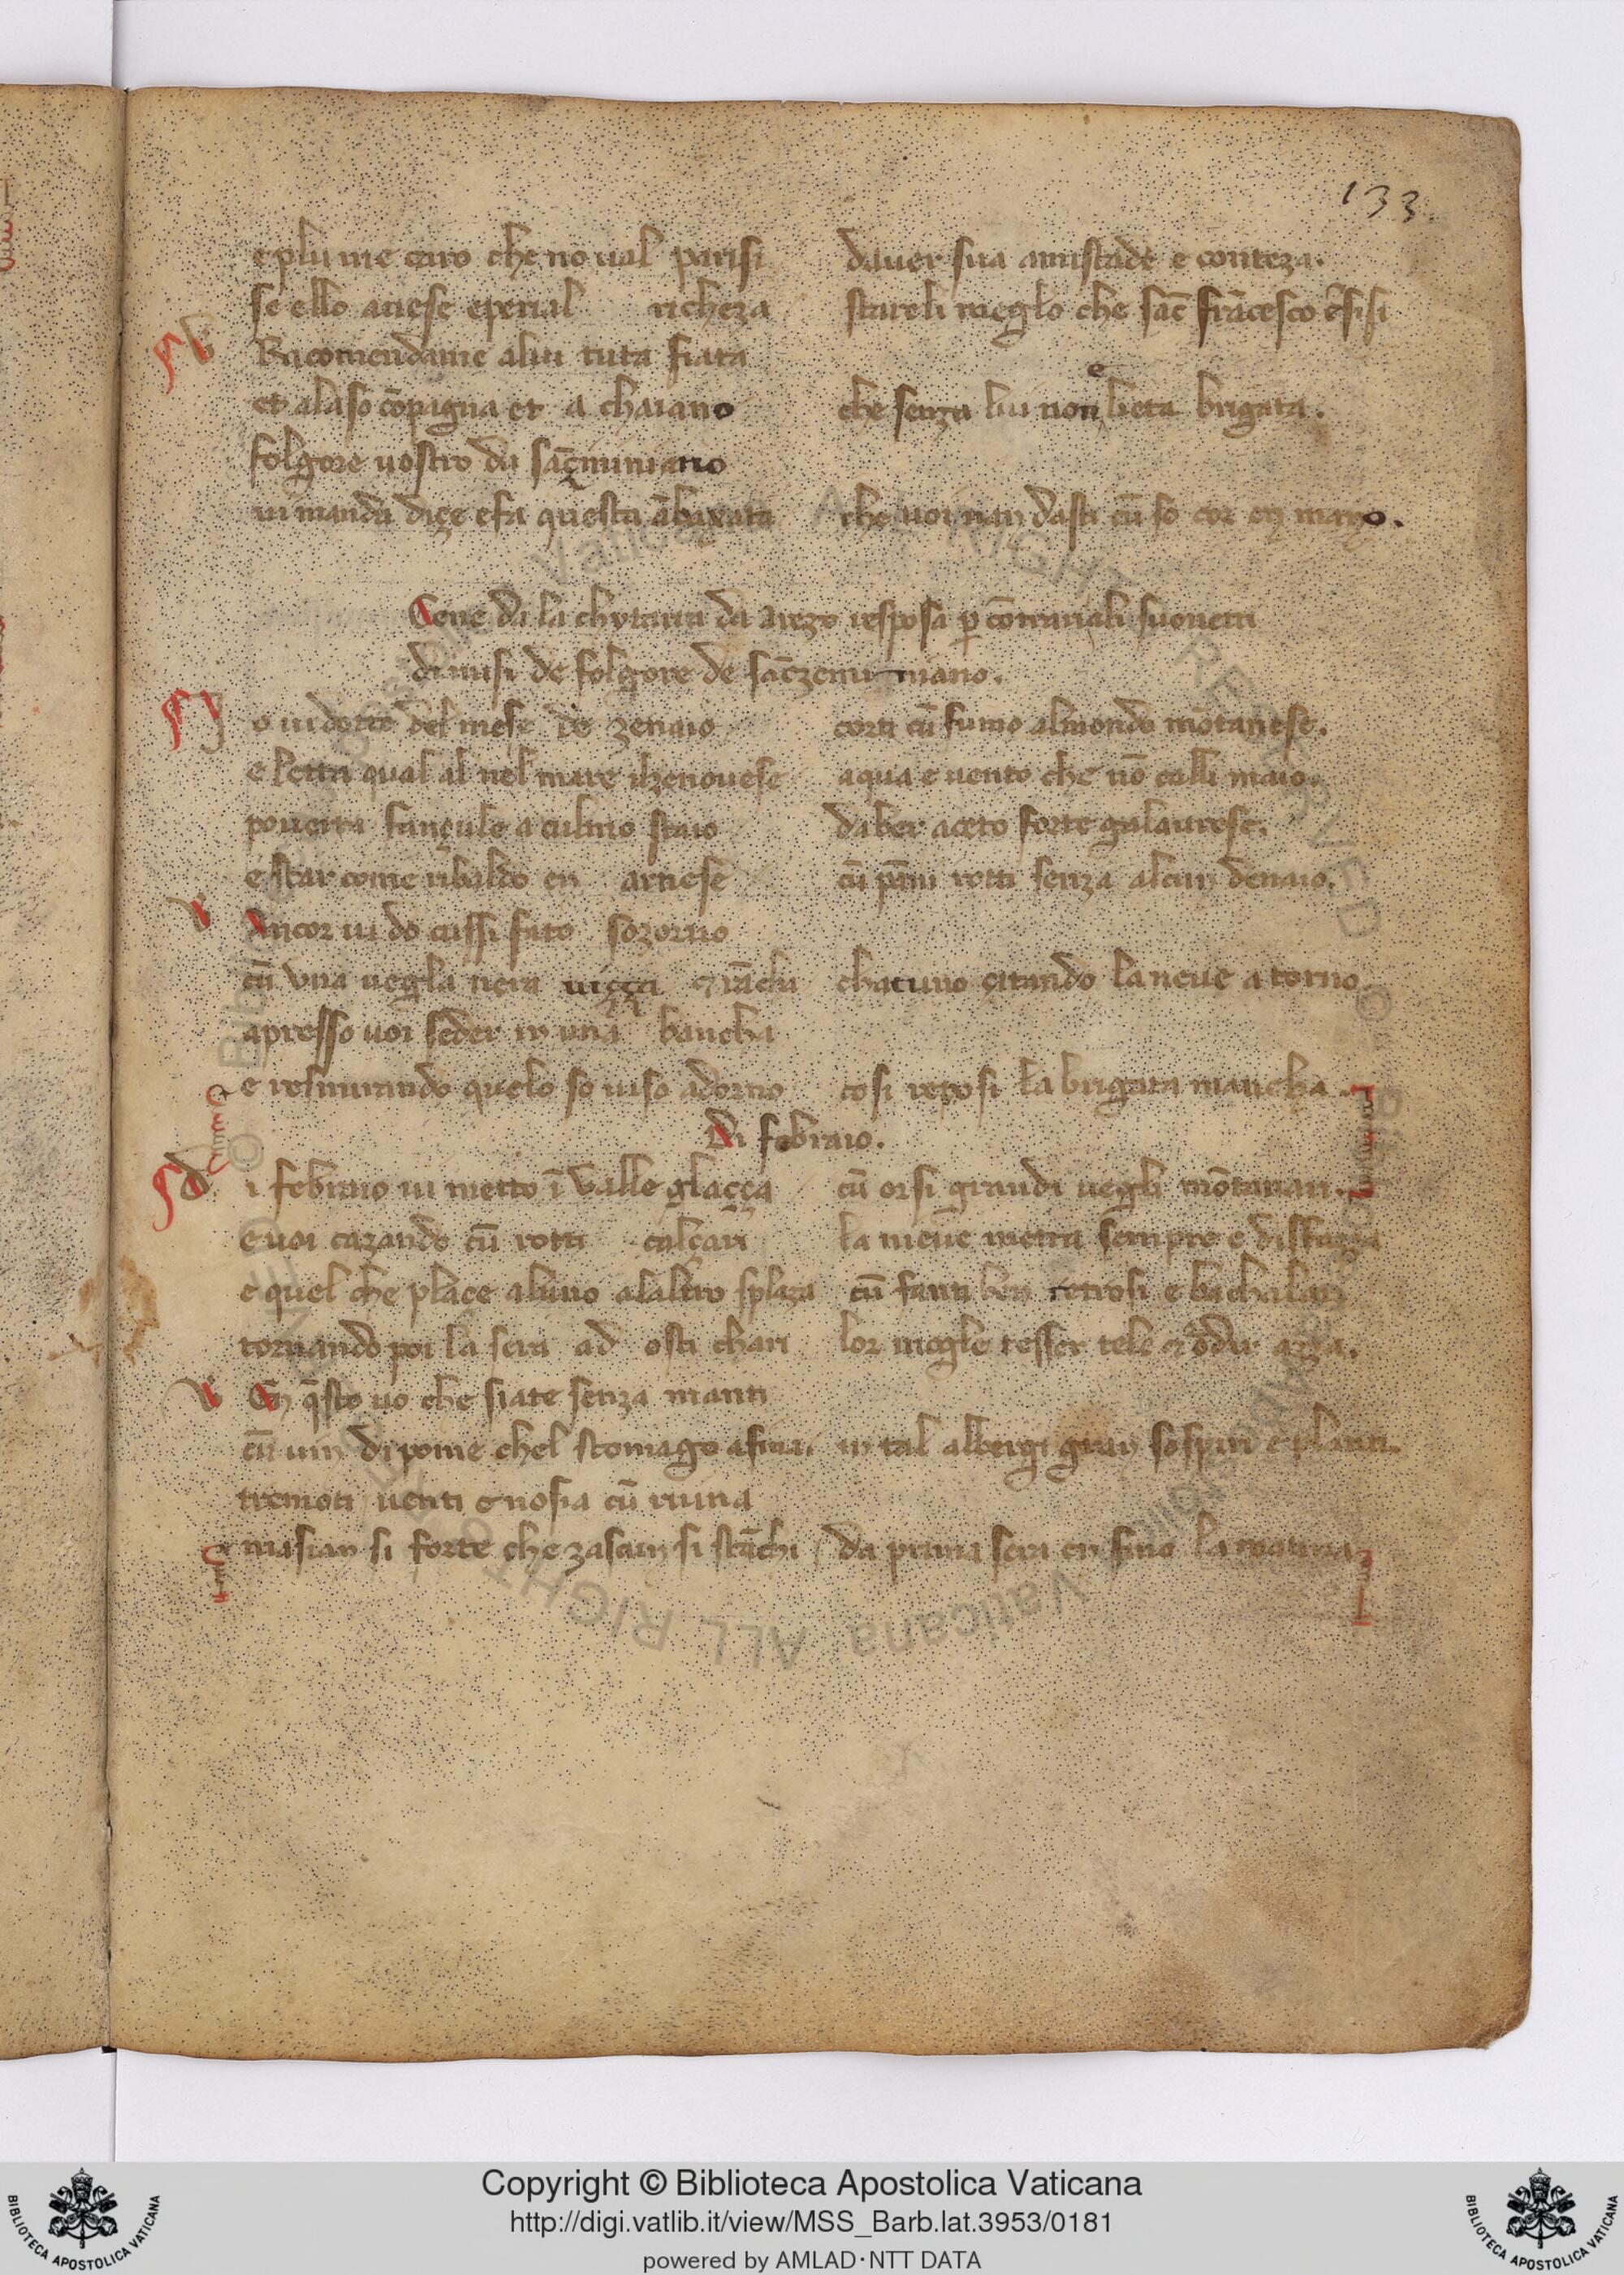 133.
e plu me caro che no ual parisi dauer sua amistade e conteza.
se ello auese eperial richeza stareli meglo che sac̄ frācesco ēsisi
Racomendame alui tuta fiata
et ala so cōpagna et a chaiano che senza lui non e lieta brigata.
folgore uostro da sāçminiano
ui manda diçe e fa questa ābaxata che uoi nan dasti cū so cor en mano.
Cene da la chytarra da arezo resposa ꝑ contrariali suonetti
di misi de folgore de sāczemi niano.
Io ui dotto del mese de zenaio corti cū fumo al mondo mōtanese.
e letta qual al nel mare il zenouese aqua e uento che nō calli maio.
pouerta fançule a culmo staio da ber aceto forte galaurese.
e star come ribaldo en arnese cū pāni rotti senza alcun denaio.
Ancor ui do cussi fato sozorno
cū vna uegla nera uiçça & rācha chatuno gitando la neue a torno.
apresso uoi seder in una bancha
e resmirando quelo so uiso adorno cosi reposi la brigata mancha.
Di febraio.
Di febraio ui metto ī valle glaçça cū orsi grandi uegli mōtanari.
e uoi cazando cū rotti calçari la neue metta sempre e disfaçça
e quel che plaçe a luno alaltro splaza cū fanti ben retrosi e bachalari
tornando poi la sera ad osti chari lor mogle tesser tele & ordir azza.
En q̄sto uo che siate senza manti
cū uin di pome chel stomago afina. in tal albergi gran sospiri e planti.
tremoti uenti e nosia cū ruina
ma sian si forte che zascun si stāchi da prima sera en fino la matina
Copyright © Biblioteca Apostolica Vaticana
http://digi.vatlib.it/view/MSS_Barb.lat.3953/0181
powered by AMLAD·NTT DATA
BIBLIOTECA APOSTOLICA VATICANA
BIBLIOTECA APOSTOLICA VATICANA